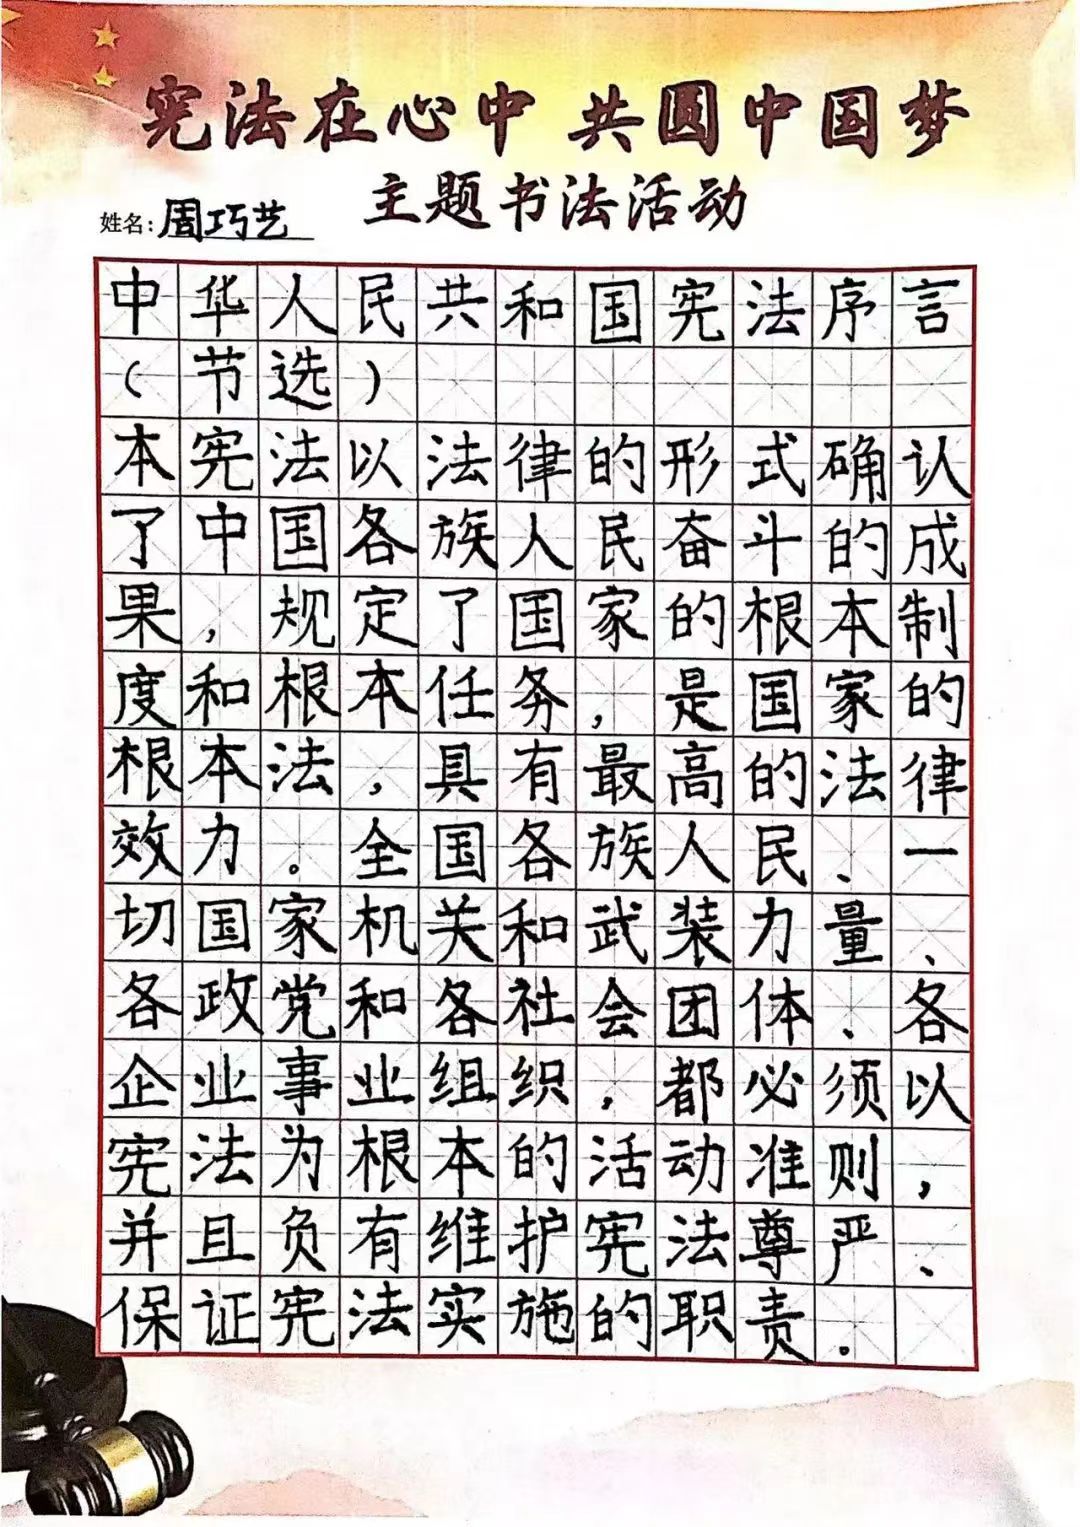 宪法在心中 共圆中国梦
主题书法活动
姓名:周巧艺
中华人民共和国宪法序言
(节选)
本宪法以法律的形式确认
了中国各族人民奋斗的成
果,规定了国家的根本制
度和根本任务,是国家的
根本法,具有最高的法律
效力。全国各族人民、一
切国家机关和武装力量、
各政党和各社会团体、各
企业事业组织,都必须以
宪法为根本的活动准则,
并且负有维护宪法尊严、
保证宪法实施的职责.